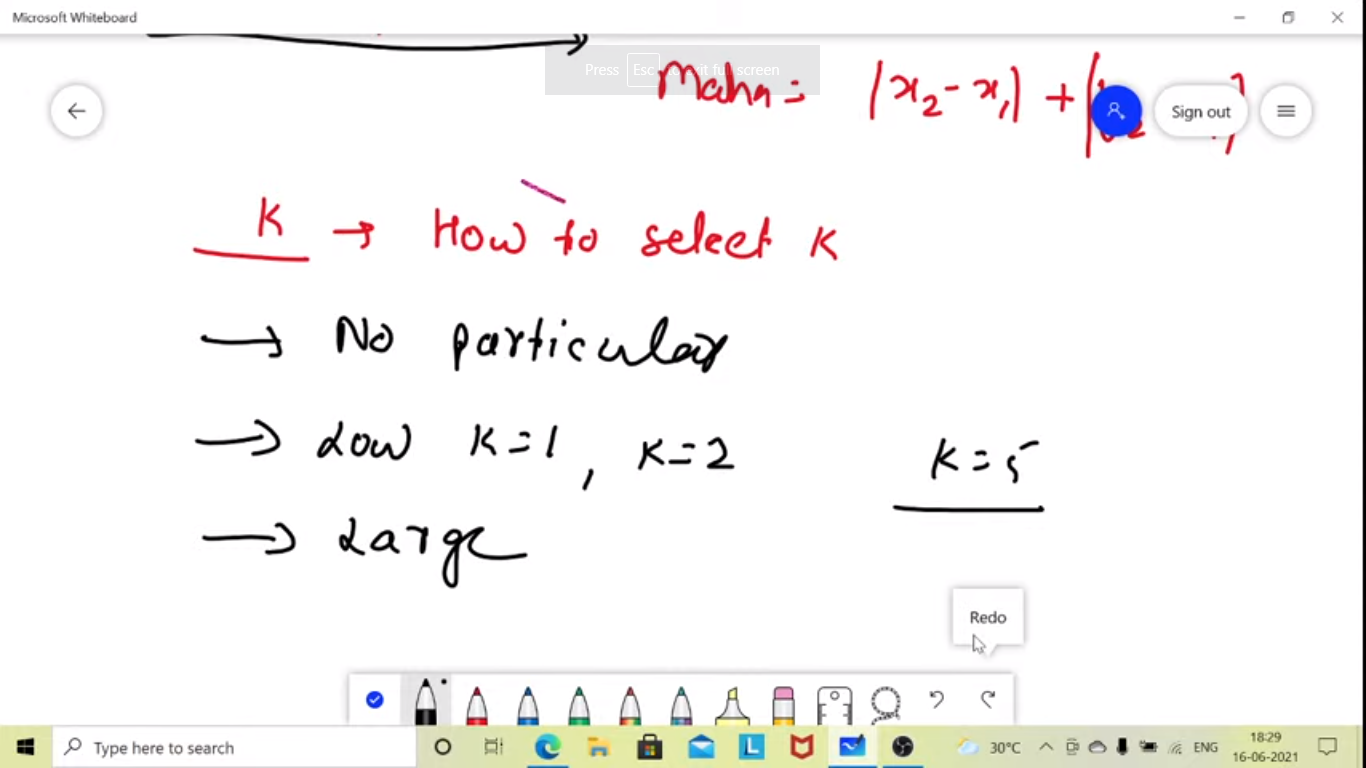 Microsoft Whiteboard
Press Esc to exit full screen
Mahn = |x₂ - x₁| + |
Sign out
K → How to select K
→ No particular
→ Low K=1, K=2
K=5
→ Large
Redo
Type here to search
30°C
ENG
18:29
16-06-2021